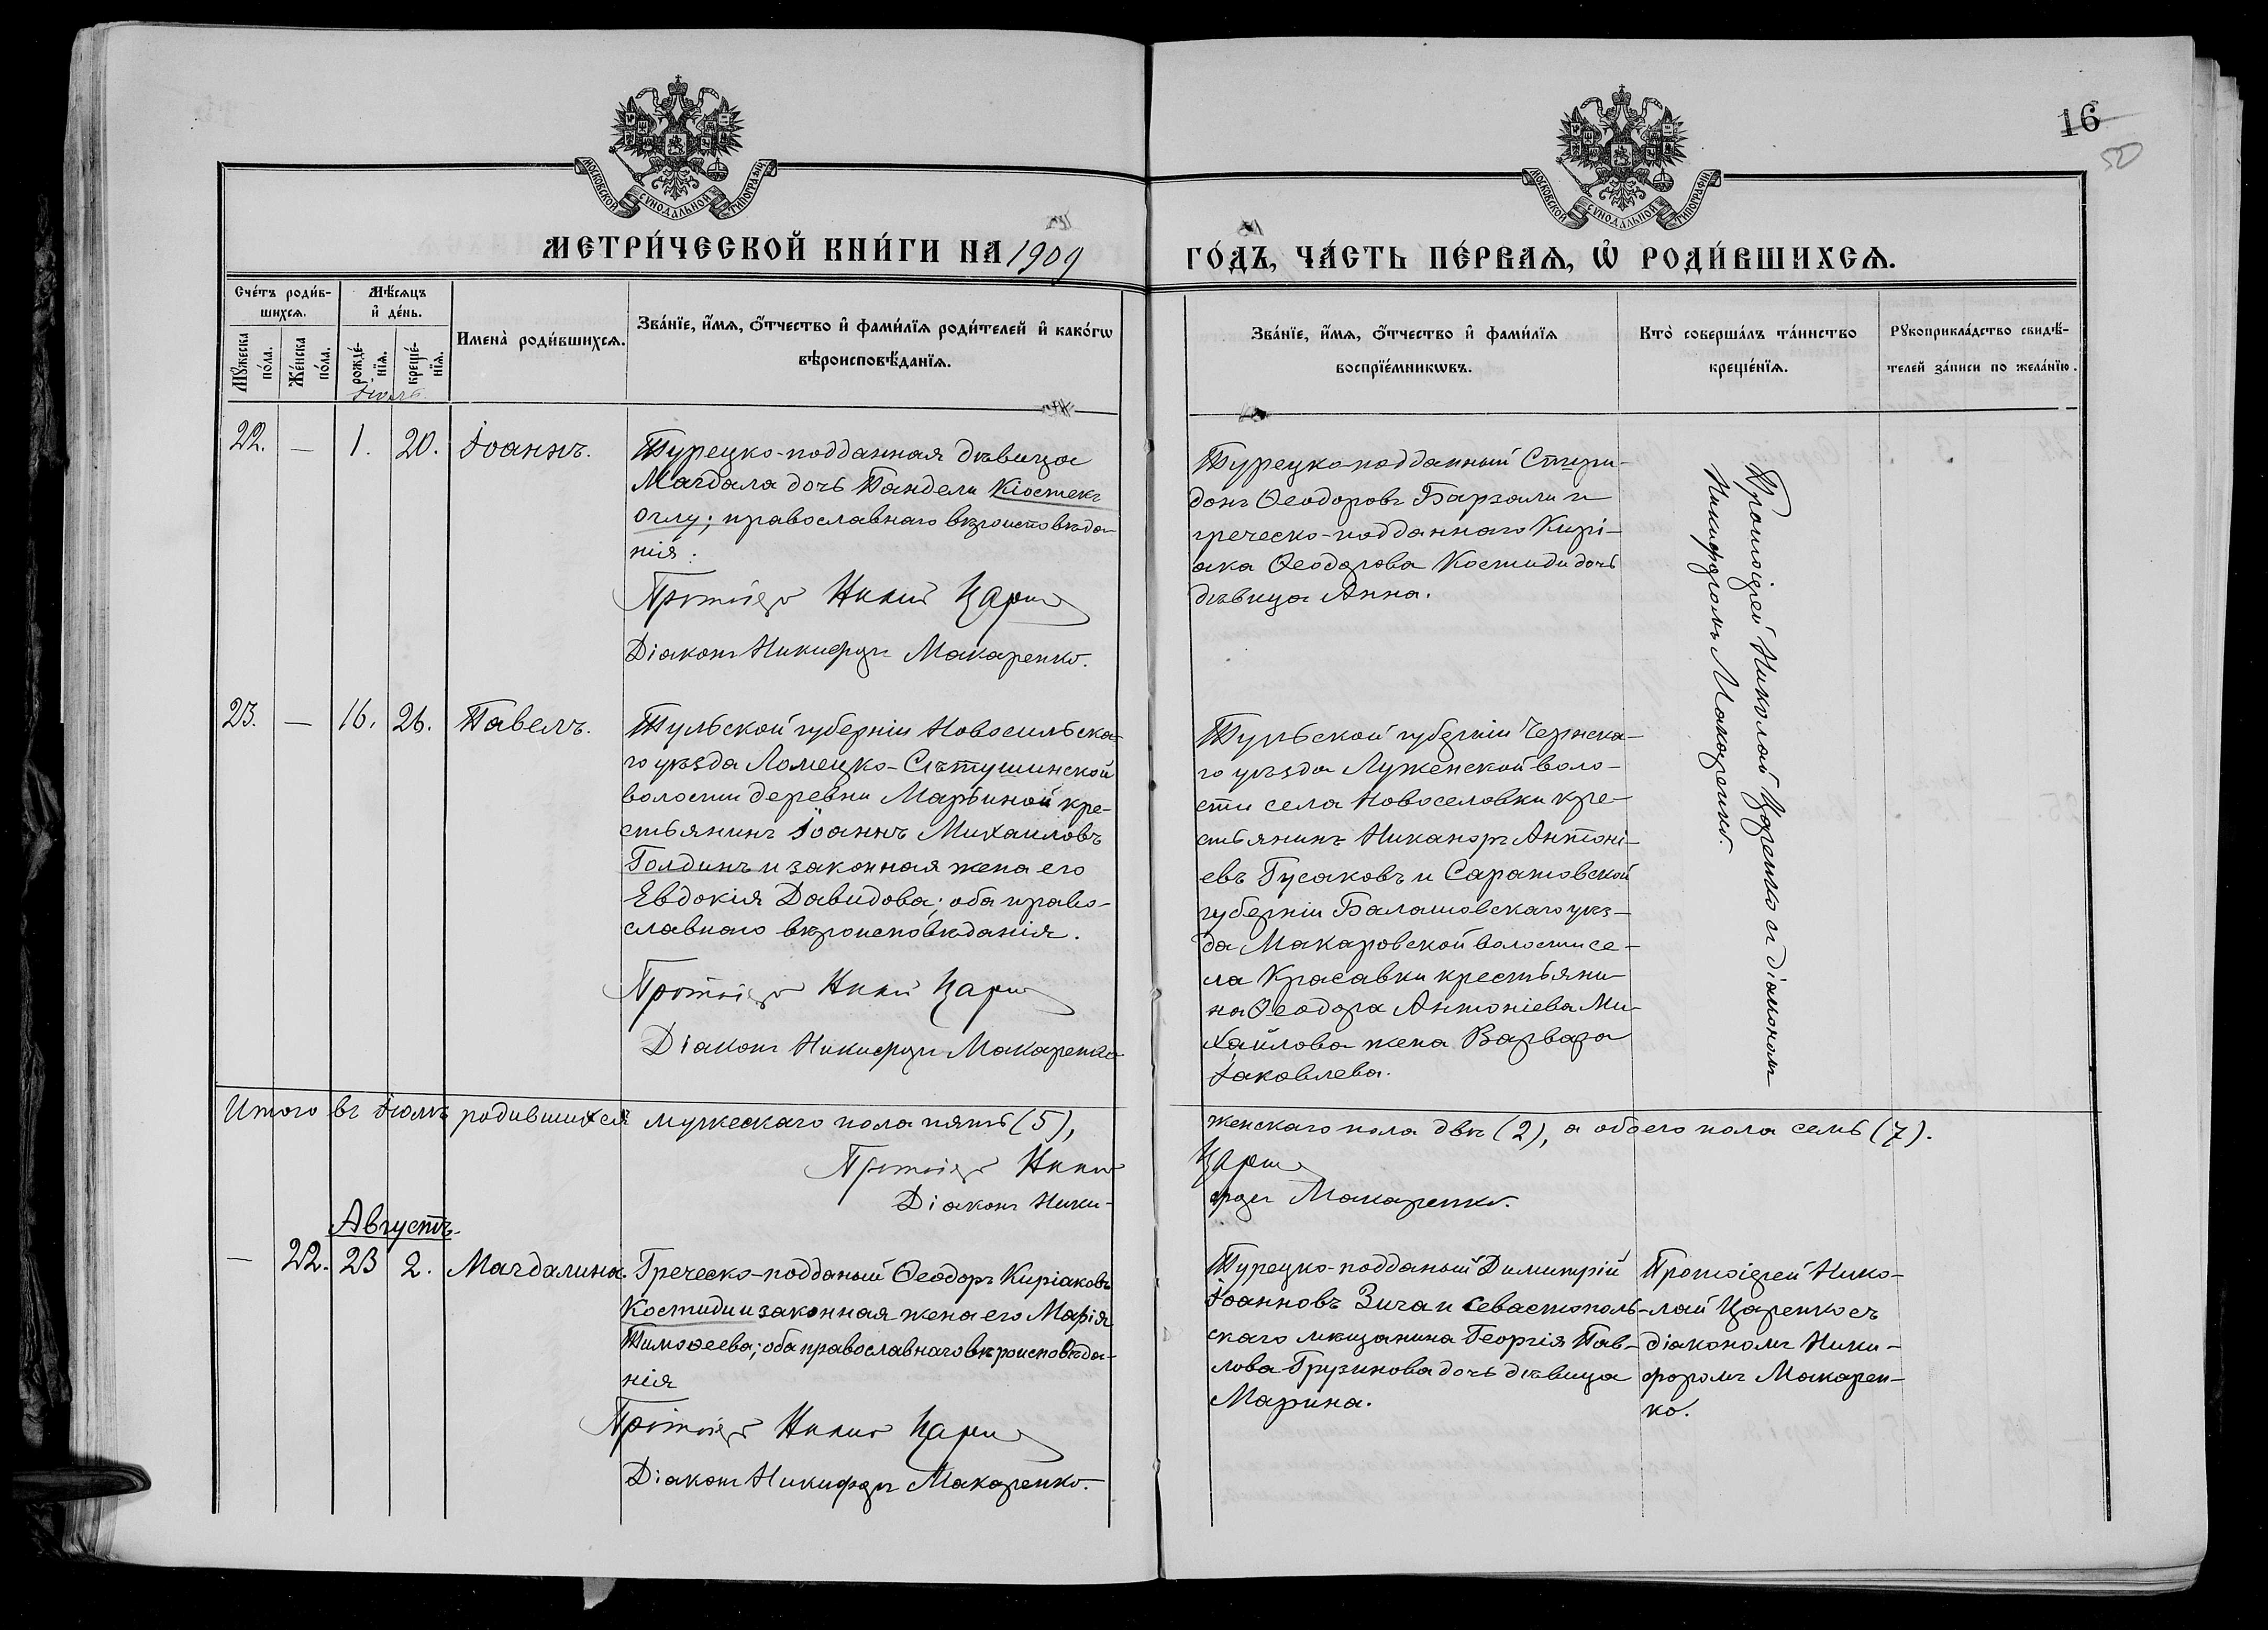 16
50
МОСКОВСКОЙ СѴНОДАЛЬНОЙ ТИПОГРАФІИ
МОСКОВСКОЙ СѴНОДАЛЬНОЙ ТИПОГРАФІИ
МЕТРИ́ЧЕСКОЙ КНИ́ГИ НА 1909
ГО́ДЪ, ЧА́СТЬ ПЕ́РВАѦ, Ѡ҆ РОДИ́ВШИХСѦ.
Сче́тъ роди́в-
шихсѧ.
Мꙋ́жеска по́ла.
Же́нска по́ла.
Мѣ́сѧцъ
и҆ де́нь.
рожде́-
нїѧ.
креще́-
нїѧ.
Имена̀ роди́вшихсѧ.
Зва́нїе, и҆́мѧ, ѻ҆́тчество и҆ фами́лїѧ роди́телей и҆ како́гѡ
вѣроисповѣ́данїѧ.
Зва́нїе, и҆́мѧ, ѻ҆́тчество и҆ фами́лїѧ
воспрїе́мникѡвъ.
Кто̀ соверша́лъ та́инство
креще́нїѧ.
Рꙋкоприкла́дство свидѣ́-
телей за́писи по жела́нїю.
Іюль
22. — 1. 20. Іоаннъ.
Турецко-подданная дѣвица
Магдала дочь Пандели Кіостекъ
оглу; православнаго вѣроисповѣда-
нія.
Протоіер Никол Царен
Діаконъ Никифоръ Макаренко.
Турецко-подданный Спири-
донъ Ѳеодоровъ Барзали и
греческо-подданнаго Кирі-
ака Ѳеодорова Костиди дочь
дѣвица Анна.
Протоіерей Николай Царенко съ діакономъ
Никифоромъ Макаренко.
23. — 16. 26. Павелъ.
Тульской губерніи Новосильска-
го уѣзда Ломецко-Сѣтушинской
волости деревни Марьиной кре-
стьянинъ Іоаннъ Михаиловъ
Голдинъ и законная жена его
Евдокія Давидова; оба право-
славнаго вѣроисповѣданія.
Протоіер Никол Царен
Діаконъ Никифоръ Макаренко
Тульской губерніи Чернска-
го уѣзда Луженской воло-
сти села Новоселовки кре-
стьянинъ Никаноръ Антоні-
евъ Гусаковъ и Саратовской
губерніи Балашовскаго уѣз-
да Макаровской волости се-
ла Красавки крестьяни-
на Ѳеодора Антоніева Ми-
хайлова жена Варвара
Іаковлева.
Итого въ Іюлѣ родившихся мужескаго пола пять (5),
женскаго пола двѣ (2), а обоего пола семь (7).
Протоіер Никол
Царен
Діаконъ Ники-
форъ Макаренко.
Августъ.
— 22. 23 2. Магдалина.
Греческо-подданый Ѳеодоръ Киріаковъ
Костиди и законная жена его Марія
Тимоѳеева; оба православнаго вѣроисповѣда-
нія
Протоіер Никол Царен
Діаконъ Никифоръ Макаренко.
Турецко-подданый Димитрій
Іоанновъ Зига и Севастополь-
скаго мѣщанина Георгія Пав-
лова Грузинова дочь дѣвица
Марина.
Протоіерей Нико-
лай Царенко съ
діакономъ Ники-
форомъ Макарен-
ко.